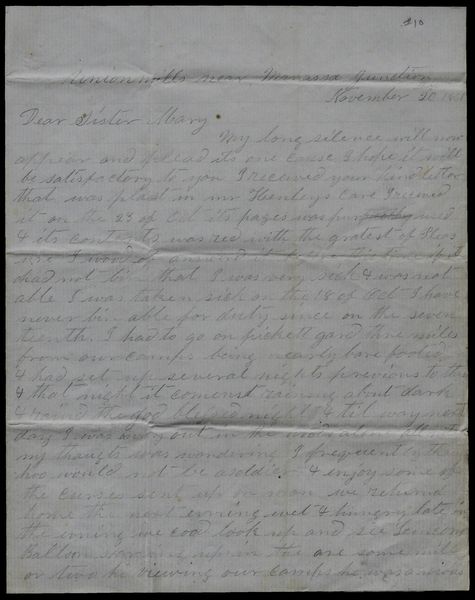 210
Union mills near Manassa Junction
November 20 1861
Dear Sister Mary
My long silence will now
appear and plead its one cause I hope it will
be satisfactory to you I received your kind letter
that was plast in mr Henleys care I received
it on the 23 of Oct its pages was
& its contents was red with the gratest of pleas
ure I wod of answerd it before this time if it
had not bin that I was very sick & was not
able I was taken sick on the 18 of Oct I have
never bin able for duty since on the seven
teenth I had to go on pickett gard three miles
from our camps being nearly bare footed
& had set up several nights previous to this
& that night it comenst raining about dark
& raind the hol blessed night & til way next
day I was away out in the woods alone
my thaughts was wandering I frequently
hoo would not be a soldier & enjoy some of
the curses sent up on soon we returnd
home the next evning wet & hungry late in
the evning we cod look up and see
Balloon up in the are some mile
or two he viewing our camps he was